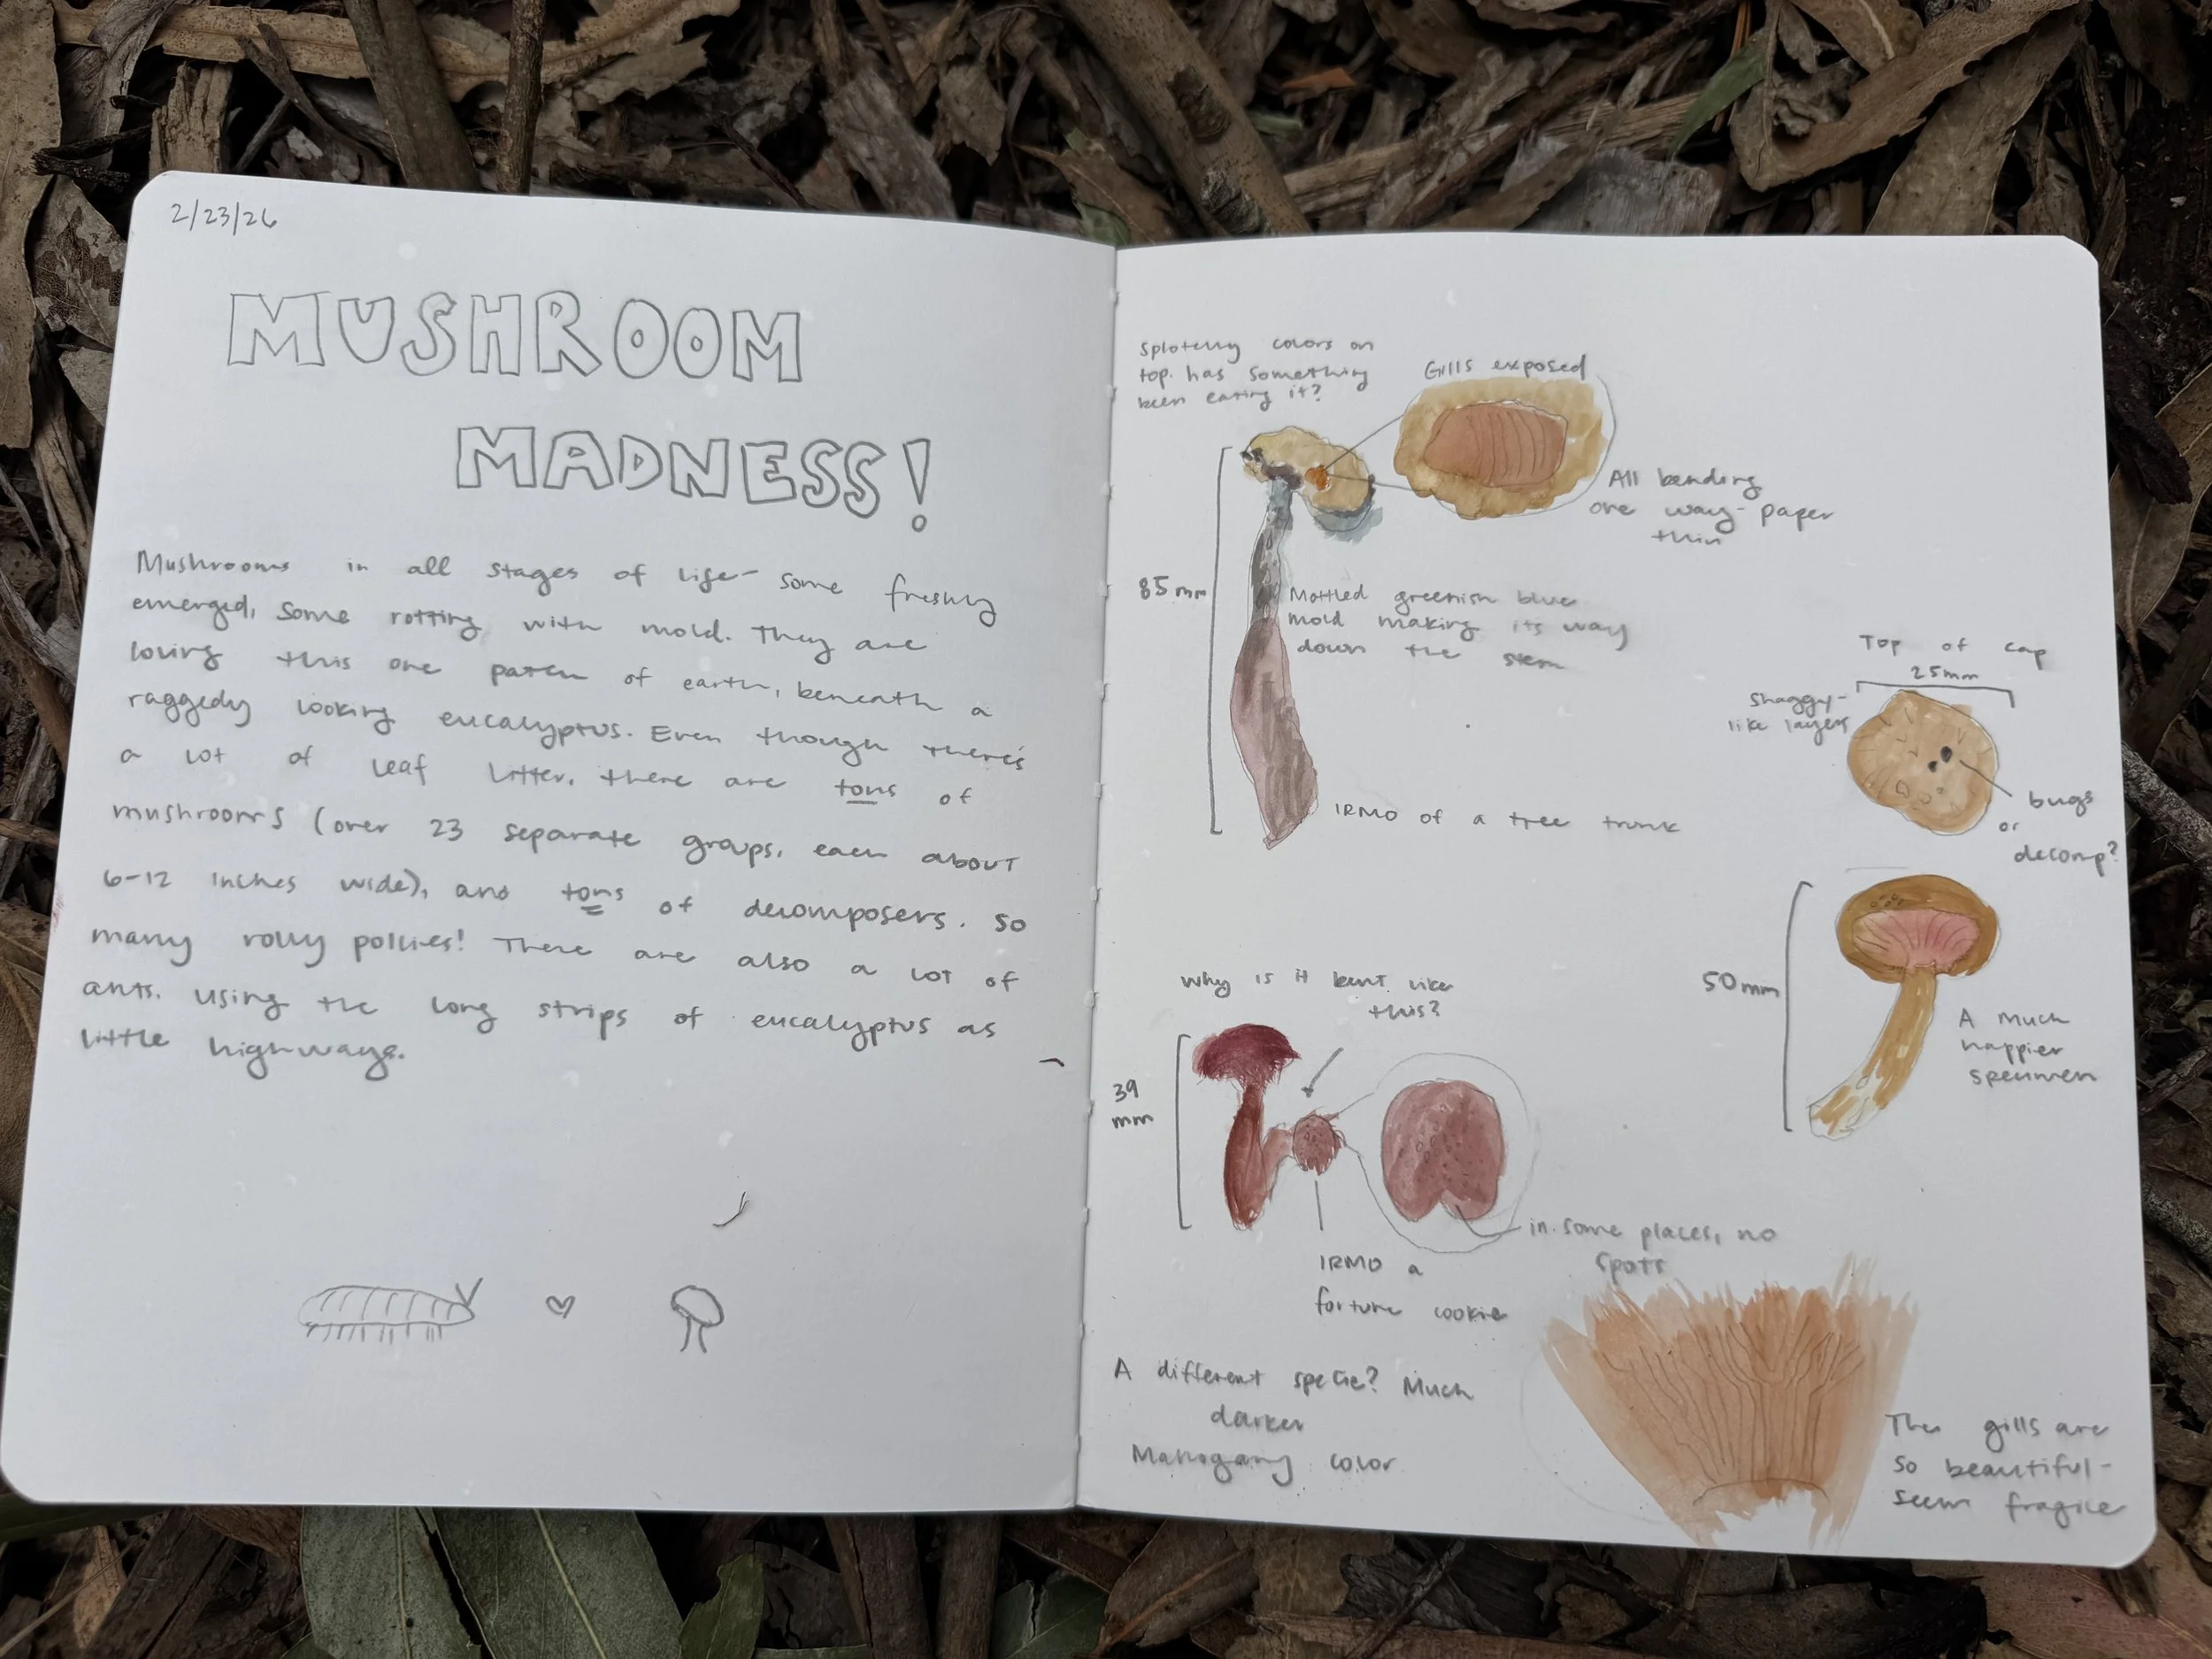 2/23/26
MUSHROOM
MADNESS!
Mushrooms in all stages of life- some freshly
emerged, some rotting with mold. They are
loving this one patch of earth, beneath a
raggedy looking eucalyptus. Even though there's
a lot of leaf litter, there are tons of
mushrooms (over 23 separate groups, each about
6-12 inches wide), and tons of decomposers. So
many rolly pollies! There are also a lot of
ants. Using the long strips of eucalyptus as
little highways.
Splotchy colors on
top. has something
been eating it?
Gills exposed
All bending
one way- paper
thin
85mm
Mottled greenish blue
mold making its way
down the stem
IRMO of a tree trunk
Top of cap
25mm
Shaggy-
like layers
bugs
or
decomp?
50mm
A much
happier
specimen
Why is it bent like
this?
39
mm
in some places, no
spots
IRMO a
fortune cookie
A different specie? Much
darker
Mahogany color
The gills are
so beautiful-
seem fragile